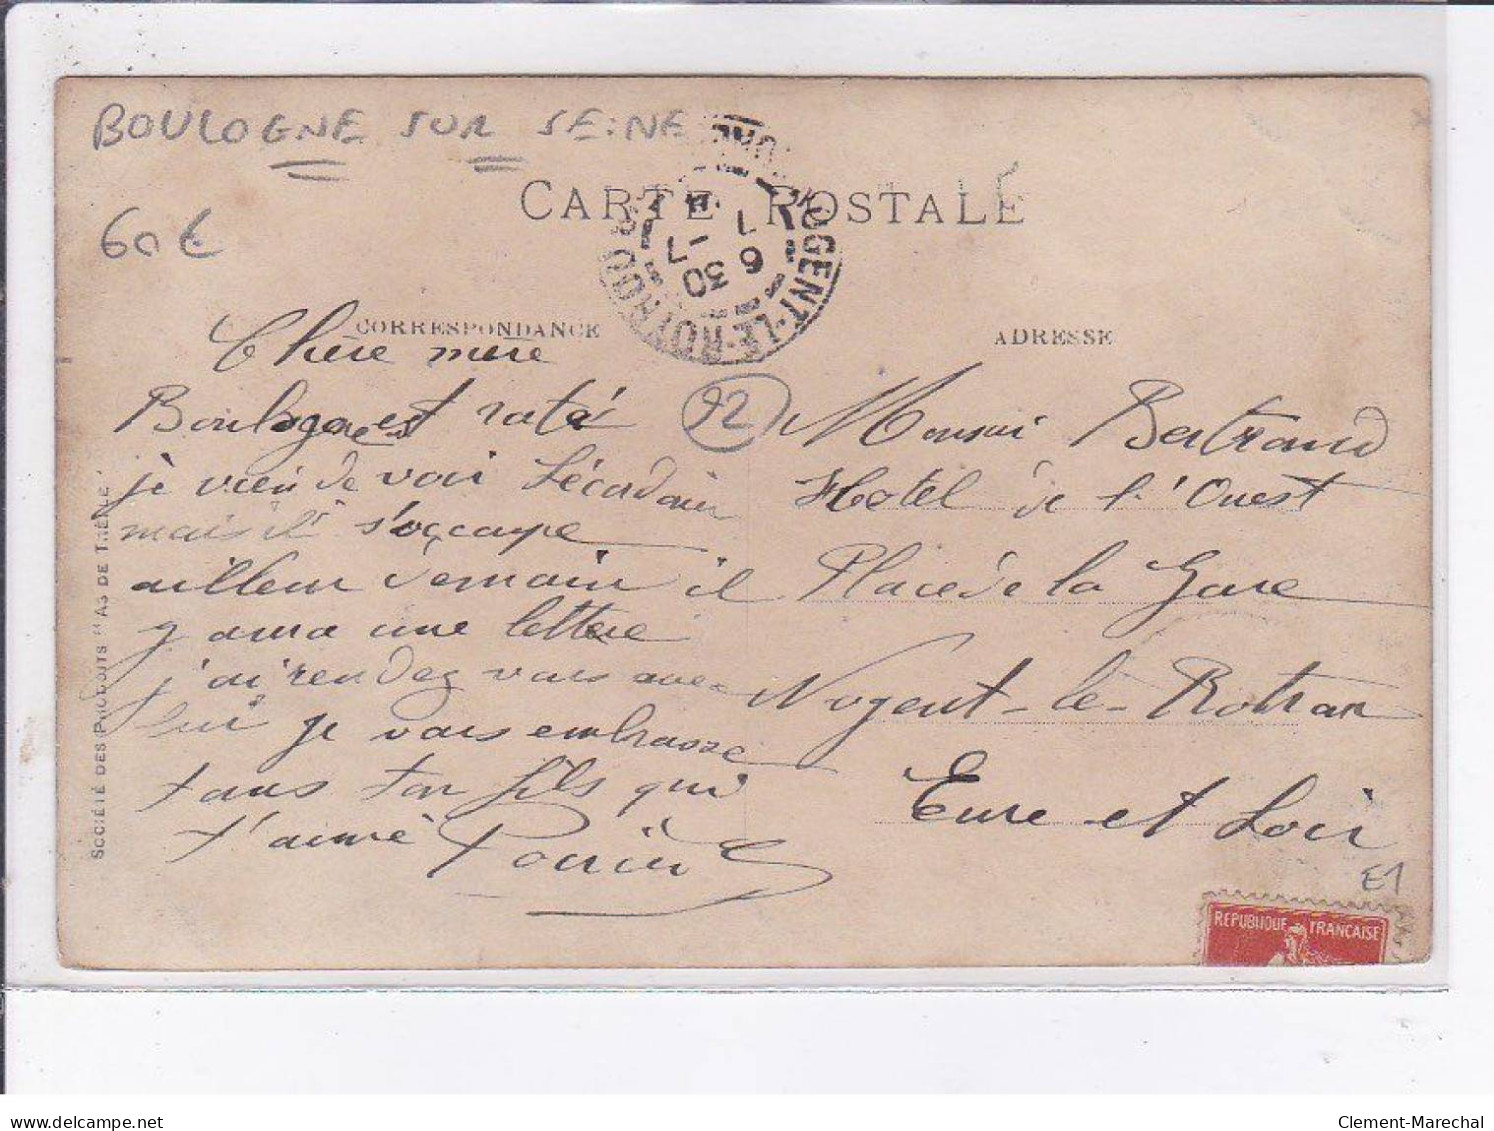 BOULOGNE SUR SEINE
60 €
CARTE POSTALE
NOGENT-LE-ROTROU
6 30
7 - 7
11
CORRESPONDANCE
ADRESSE
Chère mere
Boulogne est raté
je vien de voir Lécordair
mais il s'occupe
ailleur demain il
y aura une lettere
j'ai rendez vous avec
lui je vous embrasse
tous ton fils qui
t'aime
92
Monsieur Bertrand
Hotel de l'Ouest
Place de la Gare
Nogent-le-Rotrou
Eure et Loir
E1
REPUBLIQUE FRANÇAISE
SOCIÉTÉ DES PRODUITS "AS DE TRÈFLE"
delcampe.net
Clement-Marechal